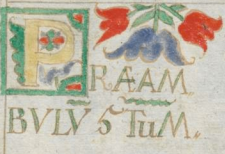 PRÆAM
BVLVM̅ 5TUM.